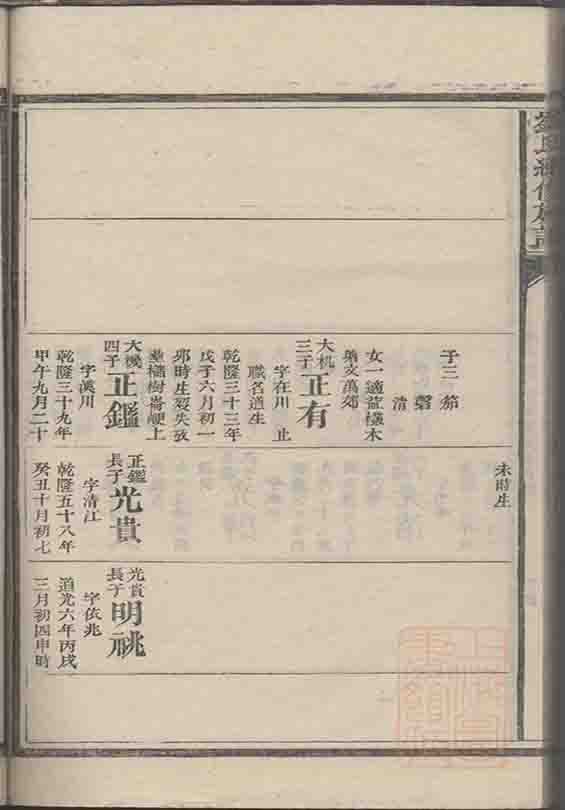 氏續修族譜
子三 笳
磬
清
女一適
弟文萬郊
大机三子 正有
字在川 止
職名道生
乾隆三十三年
戊子六月初一
卯時生娶失攷
葬橘樹崙硬上
大機四子 正鑑
字溪川
乾隆三十九年
甲午九月二十
未時生
正鑑長子 光貴
字清江
乾隆五十八年
癸丑十月初七
光貴長子 明祧
字依兆
道光六年丙戌
三月初四申時